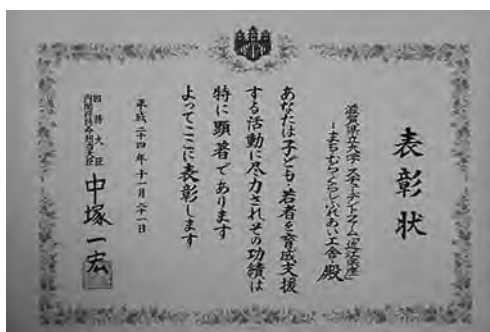 表彰状
滋賀県立大学 スチューデントファーム「近江楽座」
－まち・むら・くらしふれあい工舎－殿
あなたは子ども・若者を育成支援
する活動に尽力されその功績は
特に顕著であります
よってここに表彰します
平成二十四年十一月二十一日
国務大臣
内閣府特命担当大臣
中塚一宏